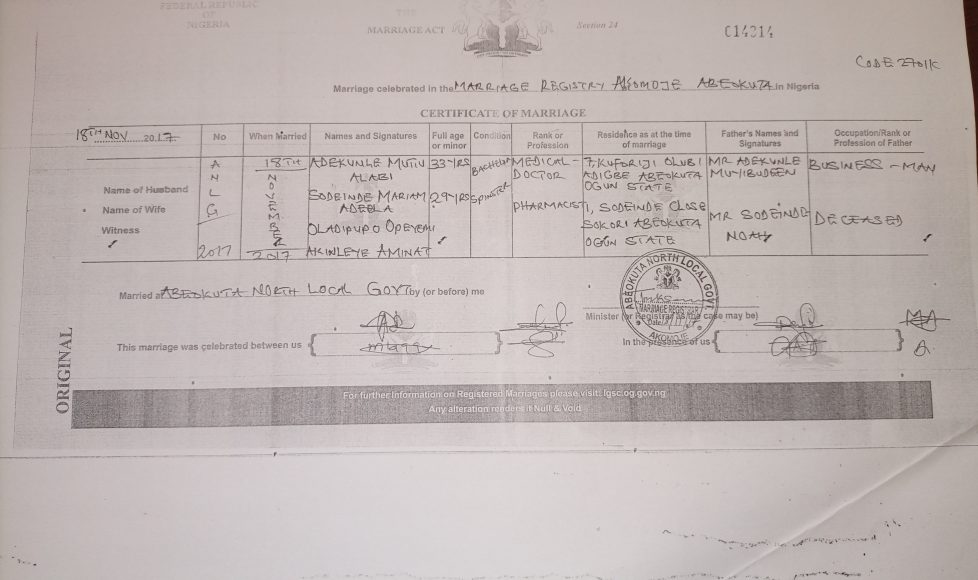 FEDERAL REPUBLIC
OF
NIGERIA
THE
MARRIAGE ACT
Section 24
C14314
CODE 2701K
Marriage celebrated in the MARRIAGE REGISTRY AKOMOJE ABEOKUTA in Nigeria
CERTIFICATE OF MARRIAGE
18TH NOV 2017
No
When Married
Names and Signatures
Full age or minor
Condition
Rank or Profession
Residence as at the time of marriage
Father's Names and Signatures
Occupation/Rank or Profession of Father
Name of Husband
Name of Wife
Witness
A N L G 2017
18TH NOVEMBER 2017
ADEKUNLE MUTIU ALABI
33-YRS
BACHELOR
MEDICAL - DOCTOR
7, KUFORIJI OLUBI
ADIGBE ABEOKUTA
OGUN STATE
MR ADEKUNLE
BUSINESS - MAN
SODEINDE MARIAM
29-YRS
SPINSTER
PHARMACIST
1, SODEINDE CLOSE
SOKORI ABEOKUTA
OGUN STATE
MR SODEINDE
NOAH
DECEASED
OLADIPUPO OPEYEMI
AKINLEYE AMINAT
Married at ABEOKUTA NORTH LOCAL GOVT by (or before) me
Minister (or Registrar as the case may be)
ABEOKUTA NORTH LOCAL GOVT.
MARRIAGE REGISTRAR
Date
AKOMOJE
This marriage was celebrated between us
In the presence of us
ORIGINAL
For further Information on Registered Marriages please visit: lgsc.og.gov.ng
Any alteration renders it Null & Void